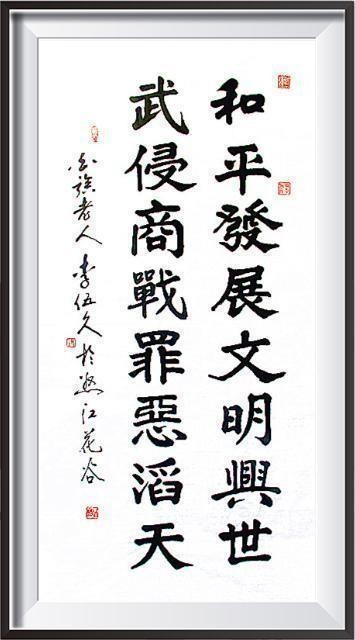 和平發展文明興世
武侵商戰罪惡滔天
白族老人李伍久於怒江花谷